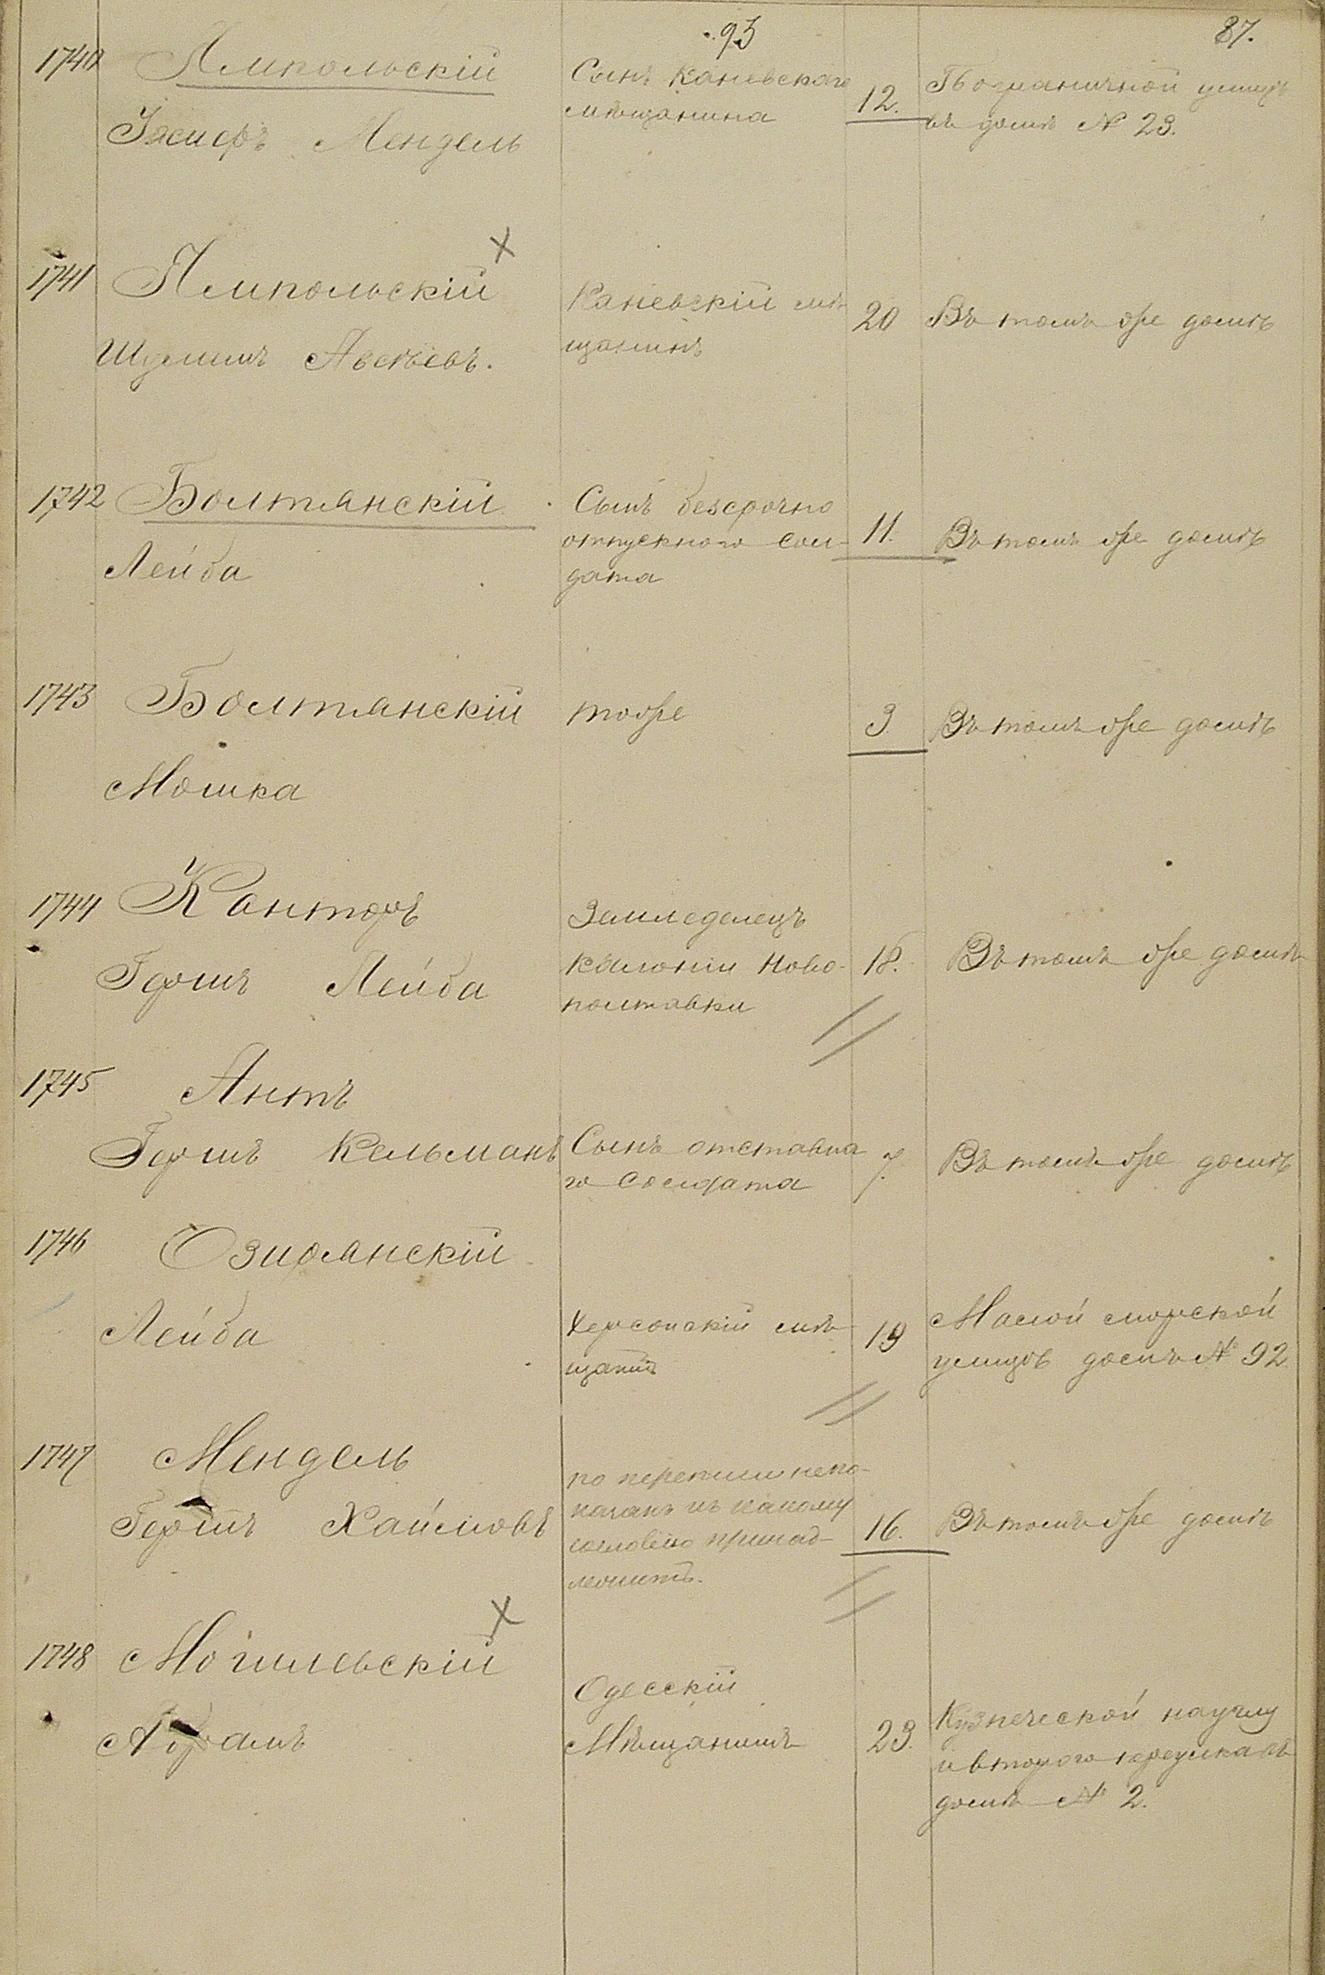 93
87.
1740 Ямпольскій
Сынъ Каневскаго
12. Пограничной улицѣ
мѣщанина
въ домѣ № 23.
Мендель
1741 Ямпольскій
Шулимъ
Каневскій мѣ-
щанинъ
20 Въ томъ же домѣ
1742 Болтянскій
Лейба
Сынъ безсрочно
отпускного сол-
дата
11. Въ томъ же домѣ
1743 Болтянскій
Мошка
тоже
3 Въ томъ же домѣ
1744 Канторъ
Гершъ Лейба
Земледелецъ
колоніи Ново-
полтавки
18. Въ томъ же домѣ
1745 Антъ
Гершъ Кельманъ
Сынъ отставна
го Солдата
7. Въ томъ же домѣ
1746
Лейба
Херсонскій мѣ-
щанинъ
19 Малой морской
улицѣ домъ № 92
1747 Мендель
Гершъ Хаимовъ
по переписи непо-
казанъ къ какому
сословію принад-
лежитъ.
16. Въ томъ же домѣ
1748 Могилевскій
Абрамъ
Одесскій
Мѣщанинъ
23. Кузнеческой
и второго въ
домѣ № 2.